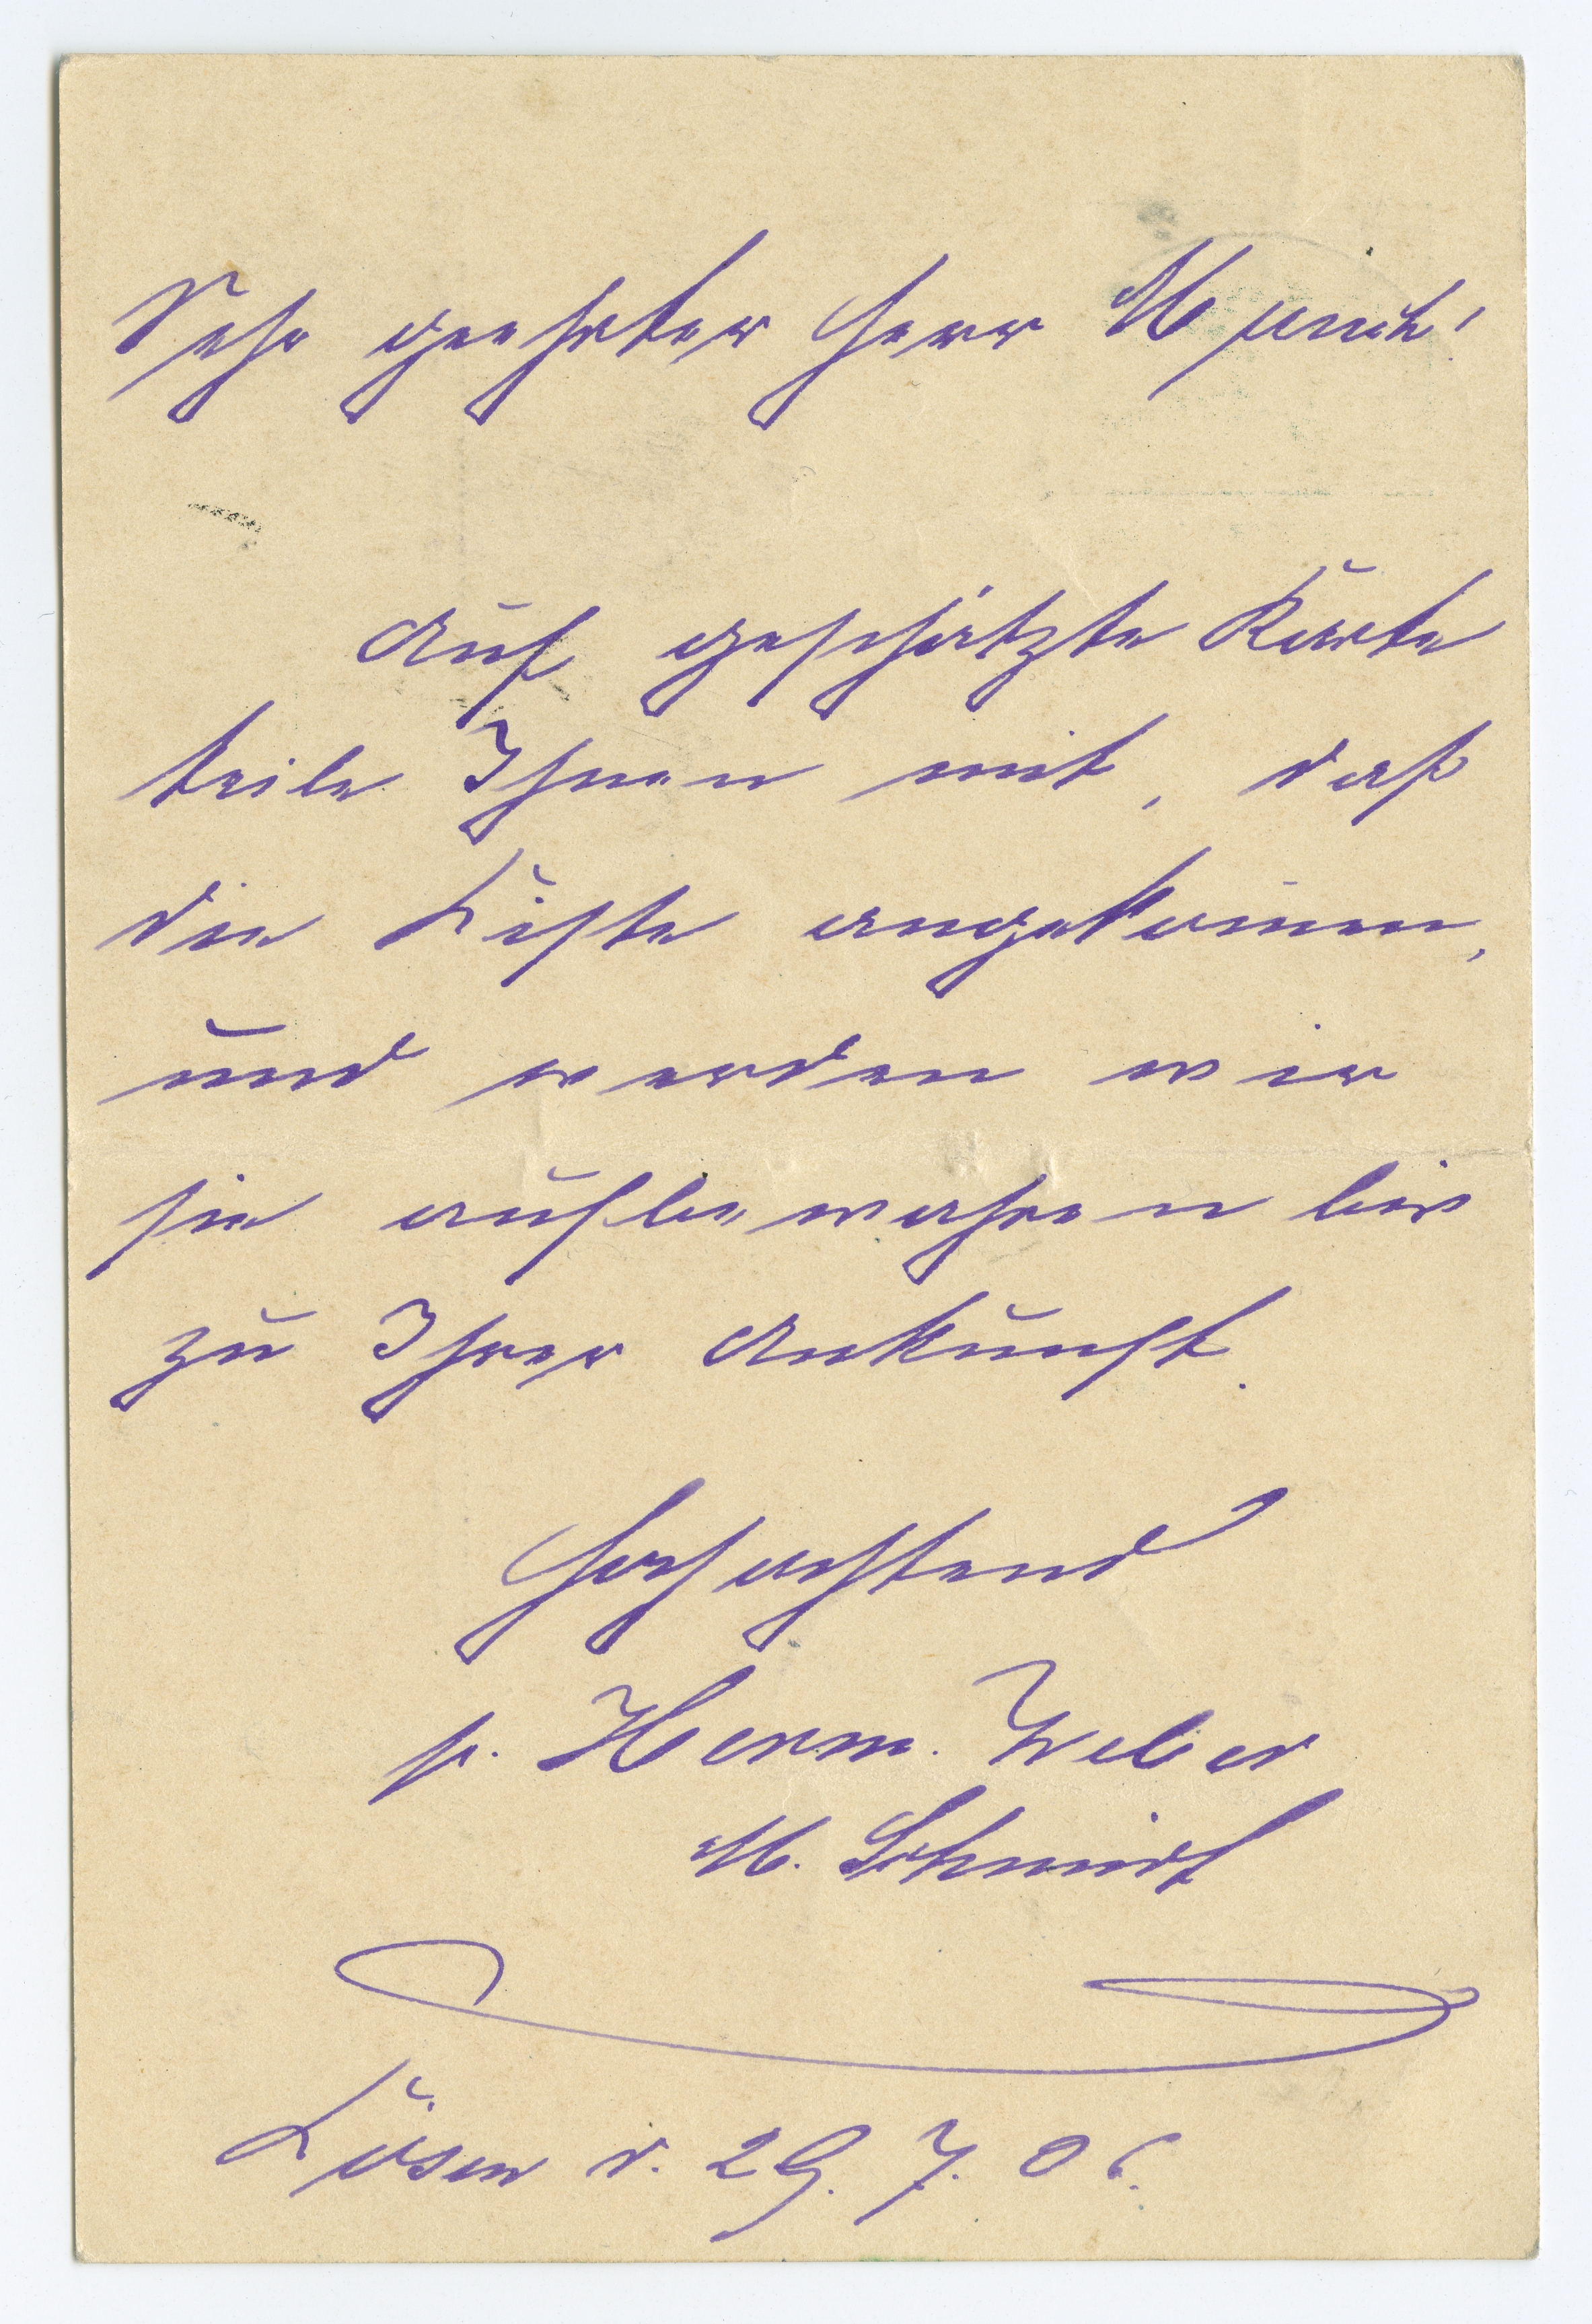 Sehr geehrter Herr Munch!
Auf geschätzte Karte
teile Ihnen mit, daß
die Kiste angekom̅en,
und werden wir
sie aufbewahren bis
zu Ihrer Ankunft.
Hochachtend
p. Herm. Weber
M. Schmidt
Kösen d. 29. 7. 06.